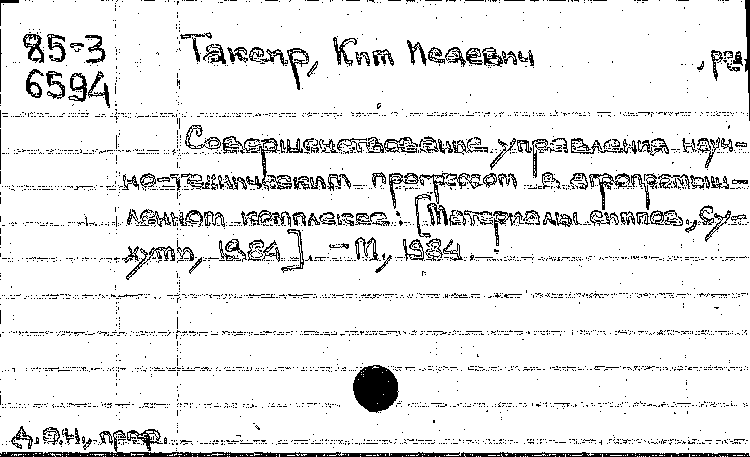 85-3 Такенр, Кит Иедевич , ред.
6594
Совершенствование управления науч-
но-техническим прогрессом в агропромыш-
ленном комплексе: [Материалы симпоз., Су-
хуми, 1984]. – М., 1984.
Д.Э.Н., проф.